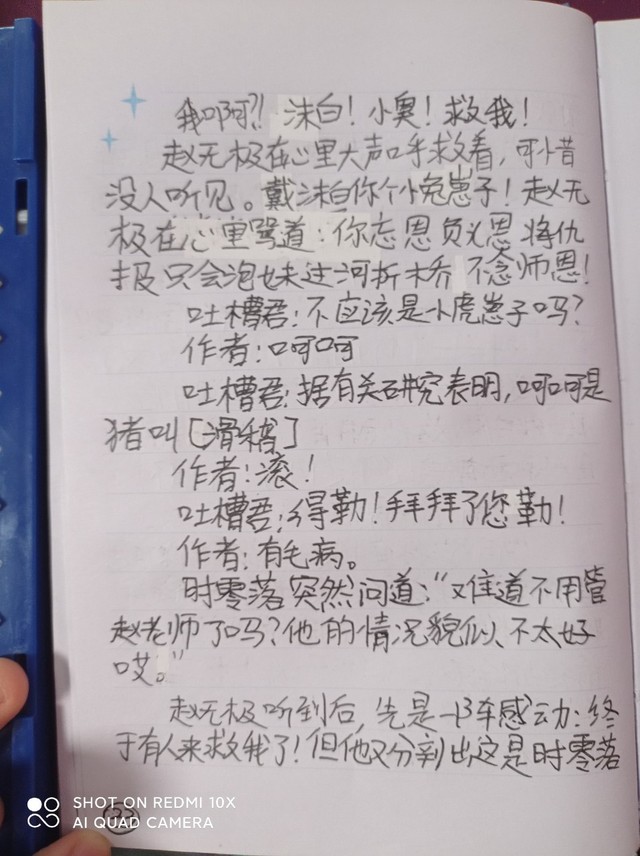 我叩阿?! 沐白！小奥！救我！
赵无极在心里大声呼救着，可惜
没人听见。戴沐白你个小兔崽子！赵无
极在心里骂道：你忘恩负义恩将仇
报只会泡妹过河折桥 不念师恩！
吐槽君：不应该是小虎崽子吗？
作者：呵呵
吐槽君：据有关研究表明，呵呵是
猪叫[滑稽]
作者：滚！
吐槽君：得勒！拜拜了您勒！
作者：有毛病。
时零落突然问道：“难道不用管
赵老师了吗？他的情况貌似、不太好
哎。”
赵无极听到后，先是一阵感动：终
于有人来救我了！但他又分辨出这是时零落
33
SHOT ON REDMI 10X
AI QUAD CAMERA